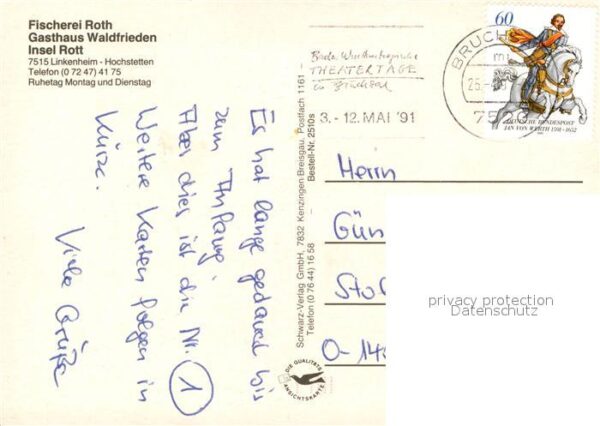 Fischerei Roth
Gasthaus Waldfrieden
Insel Rott
7515 Linkenheim - Hochstetten
Telefon (0 72 47) 41 75
Ruhetag Montag und Dienstag
Es hat lange gedauert bis
zum Anfang.
Aber dies ist die Nr. 1
Weitere Karten folgen in
Kürze.
Viele Grüße
Schwarz-Verlag GmbH, 7832 Kenzingen-Breisgau, Postfach 1161 -
Telefon (0 76 44) 16 58 - Bestell-Nr. 2510s
DIE QUALITÄTS
ANSICHTSKARTE
THEATERTAGE
in Bruchsal
3. - 12. MAI '91
BRUCH
25.-
75
60
DEUTSCHE BUNDESPOST
JAN VON WERTH 1591-1652
Herrn
Gün
Sto
O-14
privacy protection
Datenschutz